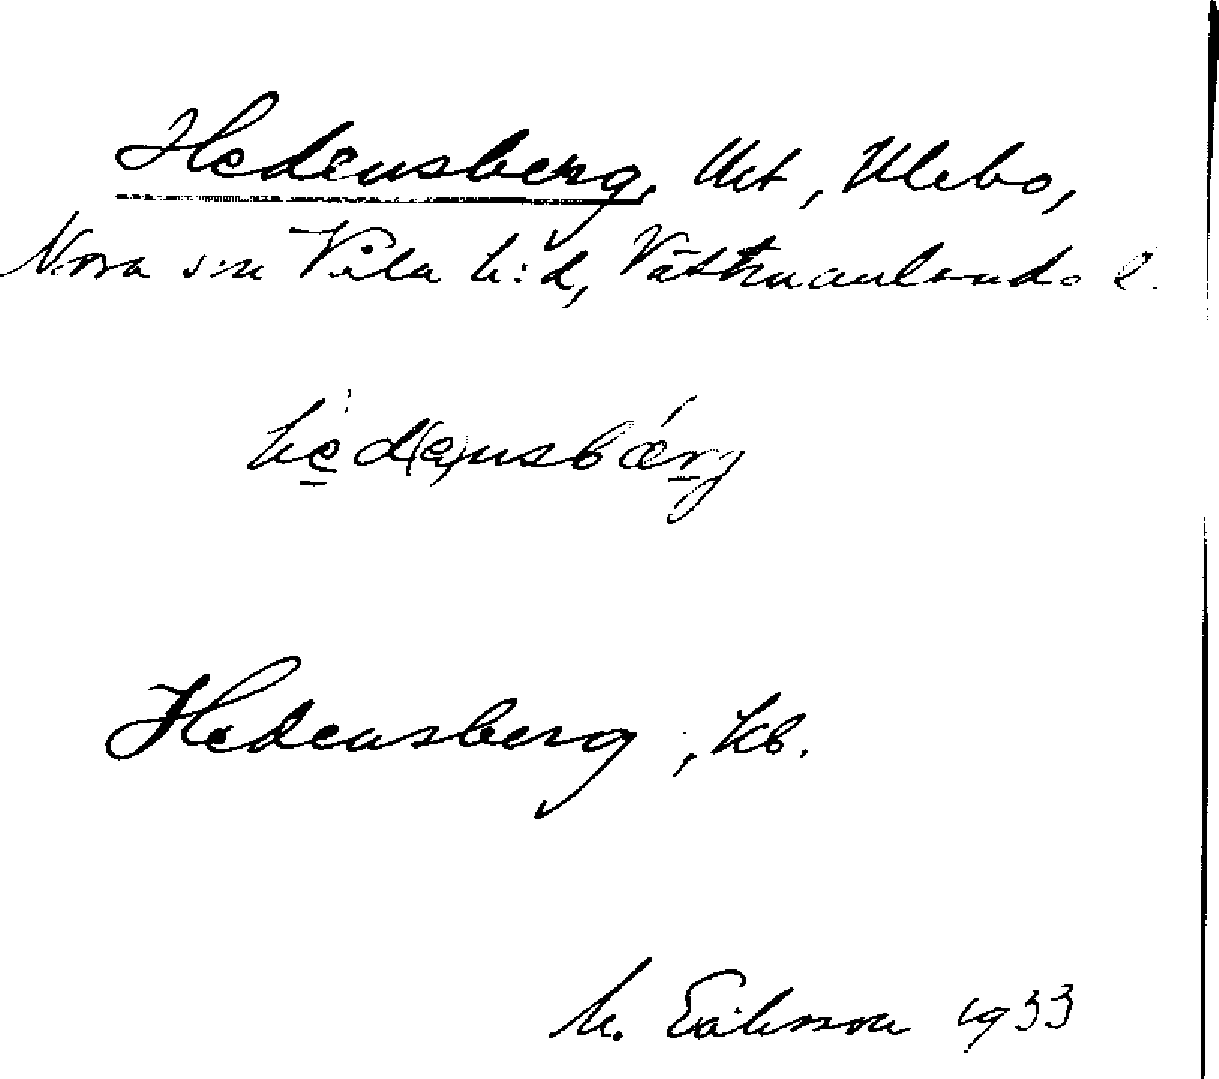 Hedensberg, Urt, Klebo,
Nora sn Våla h:d, Västmanlands l.
hed(e)nsbærg
Hedensberg, kb.
M. Eriksson 1933